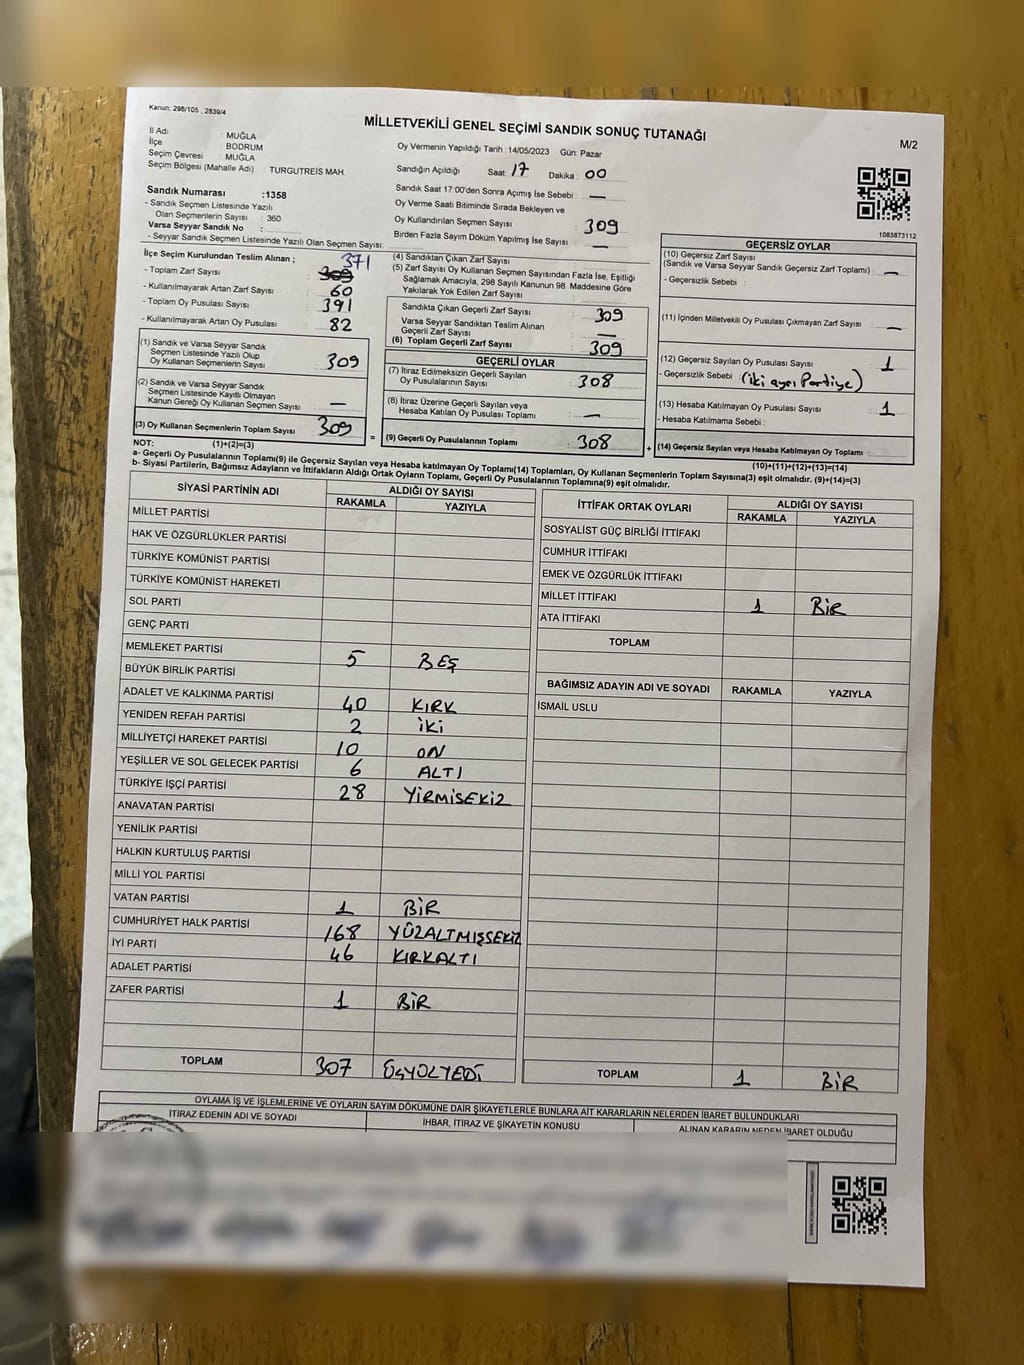 Kanun: 298/105 , 2839/4
MİLLETVEKİLİ GENEL SEÇİMİ SANDIK SONUÇ TUTANAĞI
M/2
İl Adı : MUĞLA
İlçe : BODRUM
Seçim Çevresi : MUĞLA
Seçim Bölgesi (Mahalle Adı) : TURGUTREİS MAH.
Sandık Numarası :1358
- Sandık Seçmen Listesinde Yazılı
Olan Seçmenlerin Sayısı : 360
Varsa Seyyar Sandık No :
- Seyyar Sandık Seçmen Listesinde Yazılı Olan Seçmen Sayısı:
Oy Vermenin Yapıldığı Tarih : 14/05/2023 Gün: Pazar
Sandığın Açıldığı Saat 17 Dakika : 00
Sandık Saat 17:00'den Sonra Açımış İse Sebebi : —
Oy Verme Saati Bitiminde Sırada Bekleyen ve
Oy Kullandırılan Seçmen Sayısı : 309
Birden Fazla Sayım Döküm Yapılmış İse Sayısı : —
1083873112
İlçe Seçim Kurulundan Teslim Alınan ; 371
- Toplam Zarf Sayısı : 309
- Kullanılmayarak Artan Zarf Sayısı : 60
- Toplam Oy Pusulası Sayısı : 391
- Kullanılmayarak Artan Oy Pusulası : 82
(1) Sandık ve Varsa Seyyar Sandık
Seçmen Listesinde Yazılı Olup
Oy Kullanan Seçmenlerin Sayısı : 309
(2) Sandık ve Varsa Seyyar Sandık
Seçmen Listesinde Kayıtlı Olmayan
Kanun Gereği Oy Kullanan Seçmen Sayısı : —
(3) Oy Kullanan Seçmenlerin Toplam Sayısı : 309
(1)+(2)=(3)
(4) Sandıktan Çıkan Zarf Sayısı :
(5) Zarf Sayısı Oy Kullanan Seçmen Sayısından Fazla İse, Eşitliği
Sağlamak Amacıyla, 298 Sayılı Kanunun 98. Maddesine Göre
Yakılarak Yok Edilen Zarf Sayısı :
Sandıkta Çıkan Geçerli Zarf Sayısı : 309
Varsa Seyyar Sandıktan Teslim Alınan
Geçerli Zarf Sayısı : —
(6) Toplam Geçerli Zarf Sayısı : 309
GEÇERLİ OYLAR
(7) İtiraz Edilmeksizin Geçerli Sayılan
Oy Pusulalarının Sayısı : 308
(8) İtiraz Üzerine Geçerli Sayılan veya
Hesaba Katılan Oy Pusulası Toplamı : —
= (9) Geçerli Oy Pusulalarının Toplamı : 308
GEÇERSİZ OYLAR
(10) Geçersiz Zarf Sayısı
(Sandık ve Varsa Seyyar Sandık Geçersiz Zarf Toplamı) : —
- Geçersizlik Sebebi :
(11) İçinden Milletvekili Oy Pusulası Çıkmayan Zarf Sayısı : —
(12) Geçersiz Sayılan Oy Pusulası Sayısı : 1
- Geçersizlik Sebebi : (iki ayrı Partiye)
(13) Hesaba Katılmayan Oy Pusulası Sayısı : 1
- Hesaba Katılmama Sebebi :
+ (14) Geçersiz Sayılan veya Hesaba Katılmayan Oy Toplamı :
(10)+(11)+(12)+(13)=(14)
NOT:
a- Geçerli Oy Pusulalarının Toplamı(9) ile Geçersiz Sayılan veya Hesaba katılmayan Oy Toplamı(14) Toplamları, Oy Kullanan Seçmenlerin Toplam Sayısına(3) eşit olmalıdır. (9)+(14)=(3)
b- Siyasi Partilerin, Bağımsız Adayların ve İttifakların Aldığı Ortak Oyların Toplamı, Geçerli Oy Pusulalarının Toplamına(9) eşit olmalıdır.
SİYASİ PARTİNİN ADI ALDIĞI OY SAYISI
RAKAMLA YAZIYLA
MİLLET PARTİSİ
HAK VE ÖZGÜRLÜKLER PARTİSİ
TÜRKİYE KOMÜNİST PARTİSİ
TÜRKİYE KOMÜNİST HAREKETİ
SOL PARTİ
GENÇ PARTİ
MEMLEKET PARTİSİ 5 BEŞ
BÜYÜK BİRLİK PARTİSİ
ADALET VE KALKINMA PARTİSİ 40 KIRK
YENİDEN REFAH PARTİSİ 2 İKİ
MİLLİYETÇİ HAREKET PARTİSİ 10 ON
YEŞİLLER VE SOL GELECEK PARTİSİ 6 ALTI
TÜRKİYE İŞÇİ PARTİSİ 28 YİRMİSEKİZ
ANAVATAN PARTİSİ
YENİLİK PARTİSİ
HALKIN KURTULUŞ PARTİSİ
MİLLİ YOL PARTİSİ
VATAN PARTİSİ 1 BİR
CUMHURİYET HALK PARTİSİ 168 YÜZALTMIŞSEKİZ
İYİ PARTİ 46 KIRKALTI
ADALET PARTİSİ
ZAFER PARTİSİ 1 BİR
TOPLAM 307 ÜÇYÜZYEDİ
İTTİFAK ORTAK OYLARI ALDIĞI OY SAYISI
RAKAMLA YAZIYLA
SOSYALİST GÜÇ BİRLİĞİ İTTİFAKI
CUMHUR İTTİFAKI
EMEK VE ÖZGÜRLÜK İTTİFAKI
MİLLET İTTİFAKI 1 BİR
ATA İTTİFAKI
TOPLAM
BAĞIMSIZ ADAYIN ADI VE SOYADI RAKAMLA YAZIYLA
İSMAİL USLU
TOPLAM 1 BİR
OYLAMA İŞ VE İŞLEMLERİNE VE OYLARIN SAYIM DÖKÜMÜNE DAİR ŞİKAYETLERLE BUNLARA AİT KARARLARIN NELERDEN İBARET BULUNDUKLARI
İTİRAZ EDENİN ADI VE SOYADI İHBAR, İTİRAZ VE ŞİKAYETİN KONUSU ALINAN KARARIN NEDEN İBARET OLDUĞU